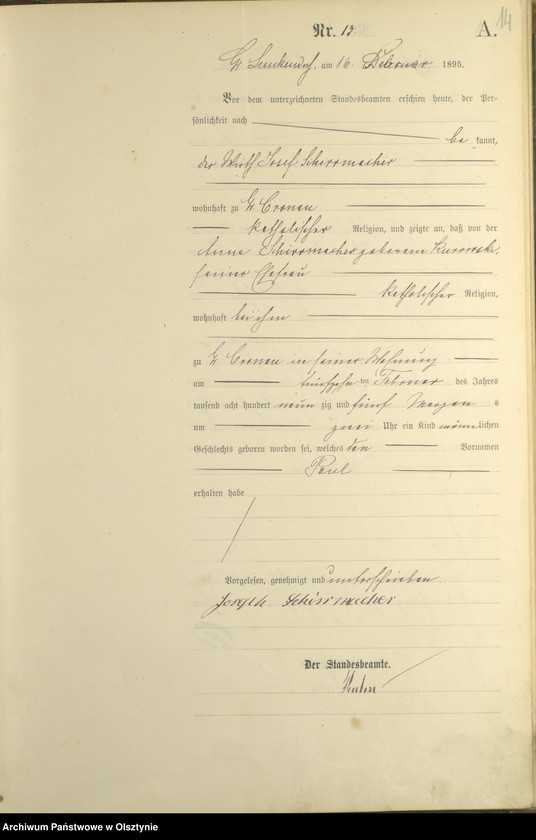 14
Nr. 13
A.
Gr Lemkendorf, am 16. Februar 1895.
Vor dem unterzeichneten Standesbeamten erschien heute, der Per-
sönlichkeit nach
be kannt,
der Wirth Josef Schirrmacher
wohnhaft zu Gr Cronau
katholischer Religion, und zeigte an, daß von der
Anna Schirrmacher geborene Kurowski,
seiner Ehefrau
katholischer Religion,
wohnhaft bei ihm
zu Gr Cronau in seiner Wohnung
am fünfzehn ten Februar des Jahres
tausend acht hundert neun zig und fünf Morgens
um zwei Uhr ein Kind männlichen
Geschlechts geboren worden sei, welches den Vornamen
Paul
erhalten habe
Vorgelesen, genehmigt und unterschrieben.
Joseph Schirrmacher
Der Standesbeamte.
Archiwum Państwowe w Olsztynie